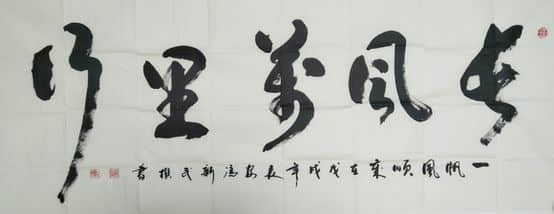 長風萬里行
一帆風順歲在戊戌年長安馮新民撰書